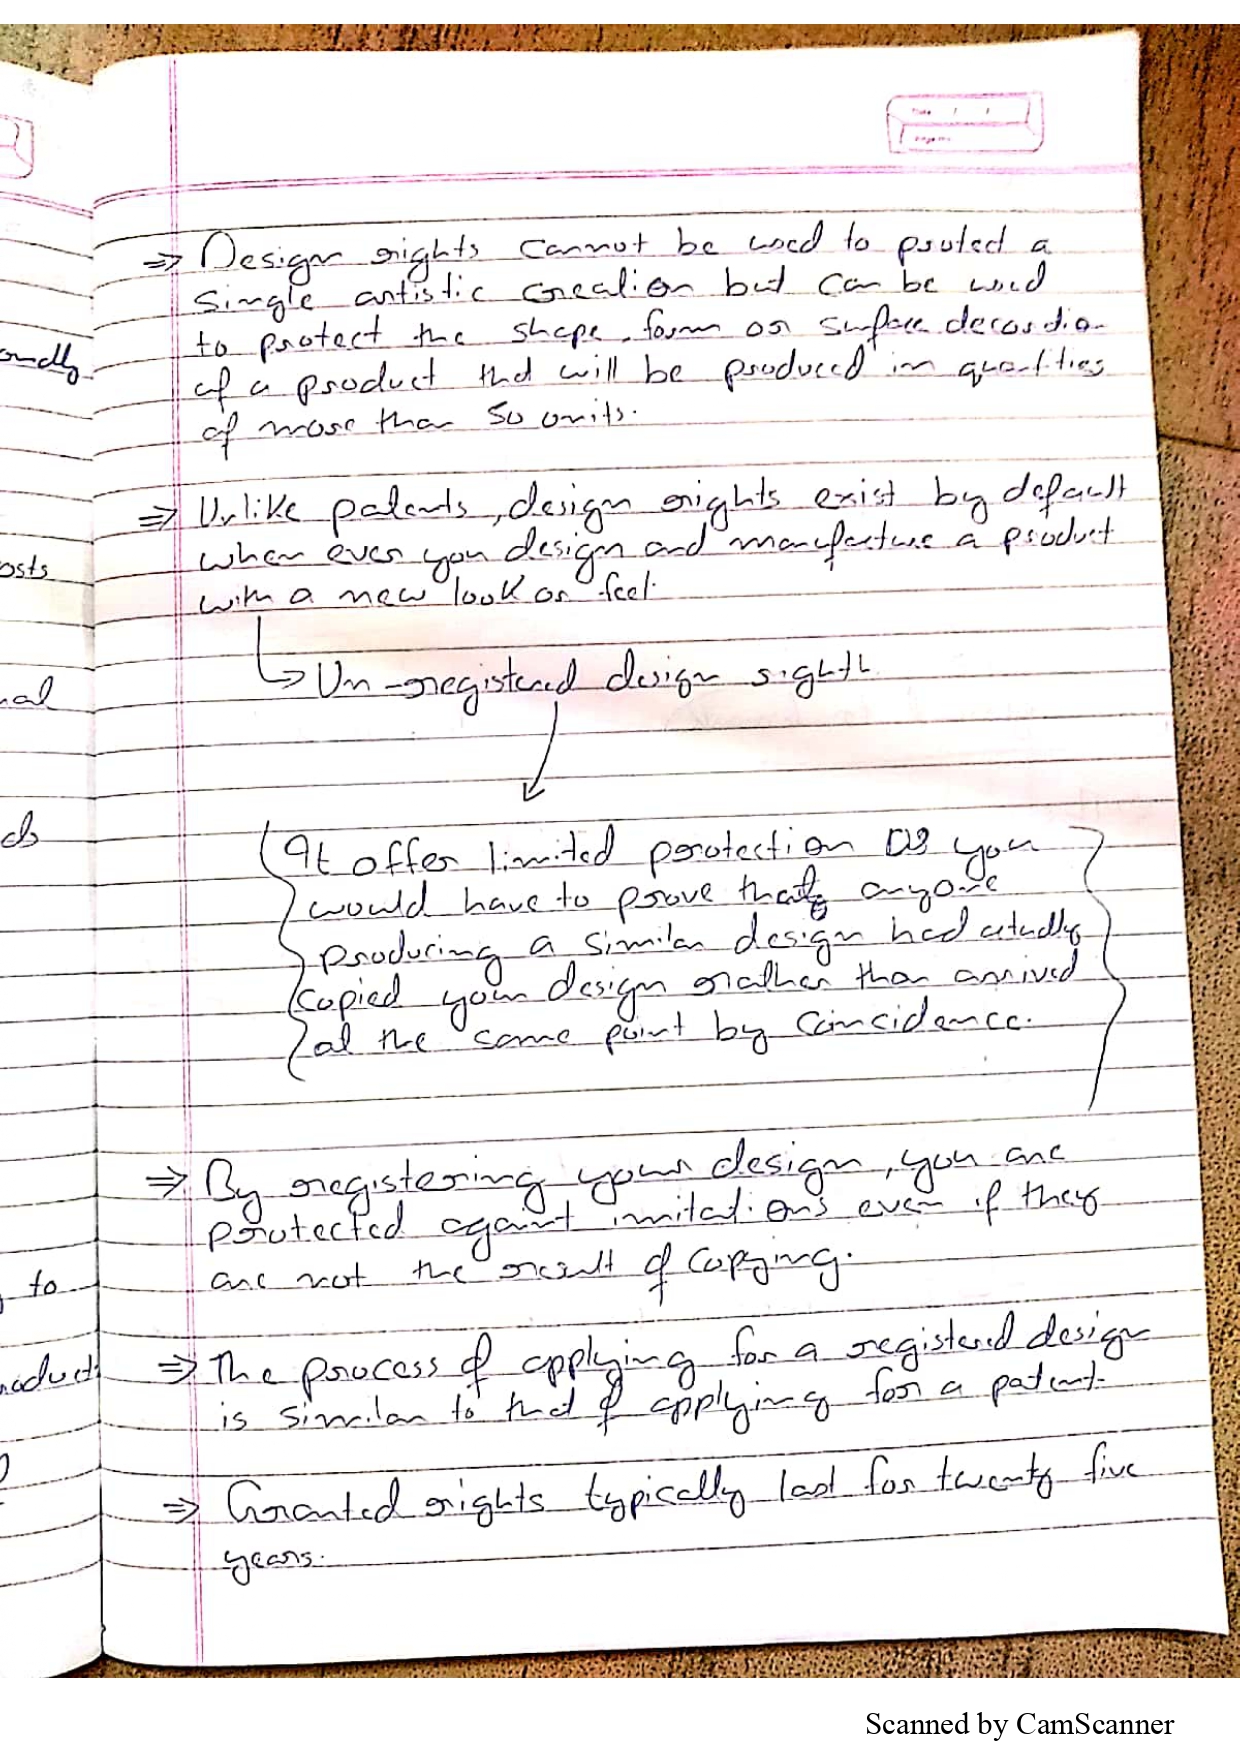 Date / /
Page No.
⇒ Design rights cannot be used to protect a
single artistic creation but can be used
to protect the shape, form or surface decoratio-
of a product that will be produced in quantities
of more than 50 units.
⇒ Unlike patents, design rights exist by default
when ever you design and manufacture a product
with a new look or feel.
↳ Un-registered design right
(It offer limited protection as you
would have to prove that anyone
producing a similar design had actually
copied your design rather than arrived
at the same point by coincidence.
⇒ By registering your design, you are
protected against imitations even if they
are not the result of copying.
⇒ The process of applying for a registered design
is similar to that of applying for a patent.
⇒ Granted rights typically last for twenty five
years.
osts
to
Scanned by CamScanner